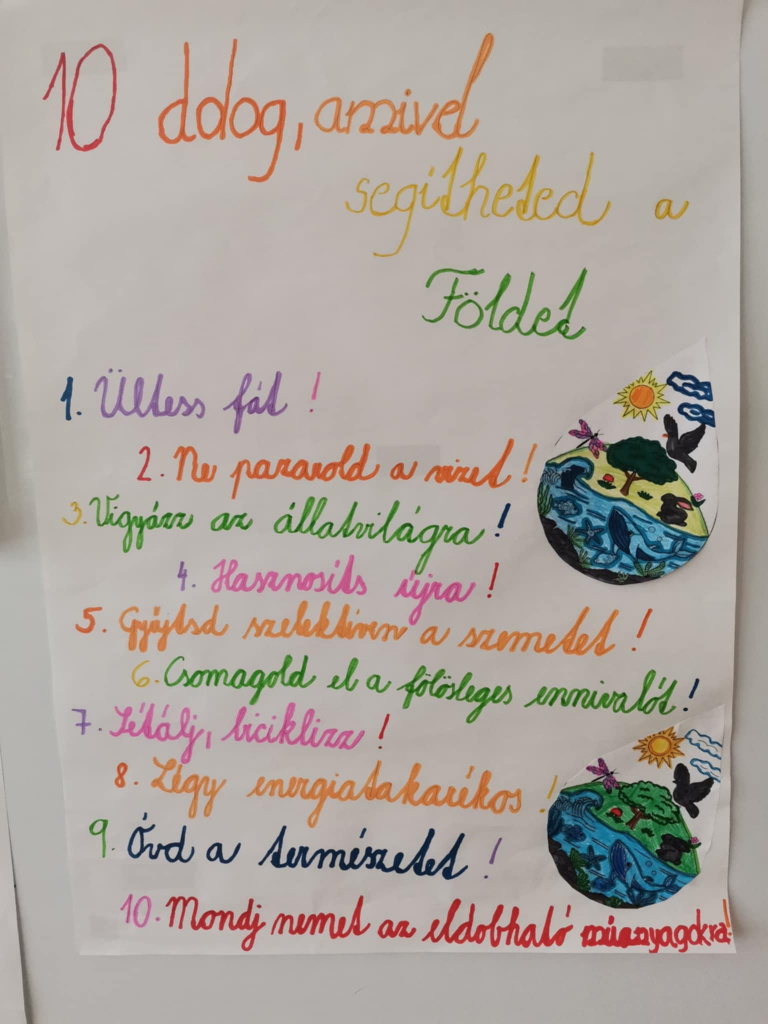 10 dolog, amivel
segítheted a
Földet
1. Ültess fát!
2. Ne pazarold a vizet!
3. Vigyázz az állatvilágra!
4. Hasznosíts újra!
5. Gyűjtsd szelektíven a szemetet!
6. Csomagold el a fölösleges ennivalót!
7. Sétálj, biciklizz!
8. Légy energiatakarékos!
9. Óvd a természetet!
10. Mondj nemet az eldobható műanyagokra!